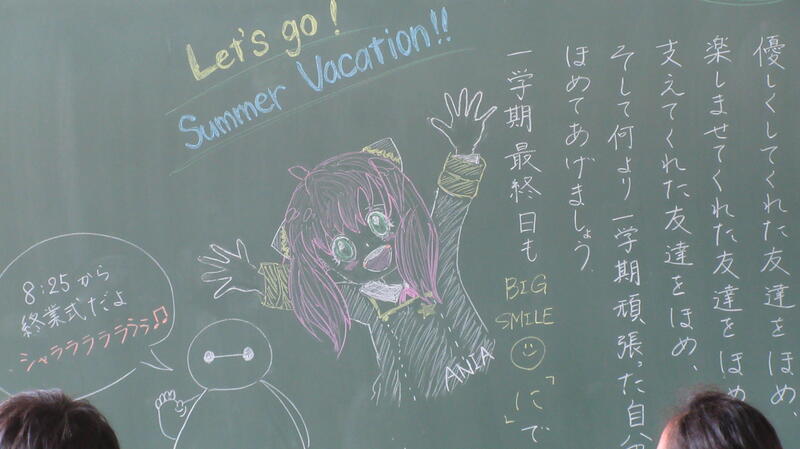 Let's go!
Summer Vacation!!
優しくしてくれた友達をほめ、
楽しませてくれた友達をほめ
支えてくれた友達をほめ、
そして何より一学期頑張った自分
ほめてあげましょう。
一学期最終日も
BIG
SMILE
「に」で
ANIA
8:25から
終業式だよ
シャラララララララ♫